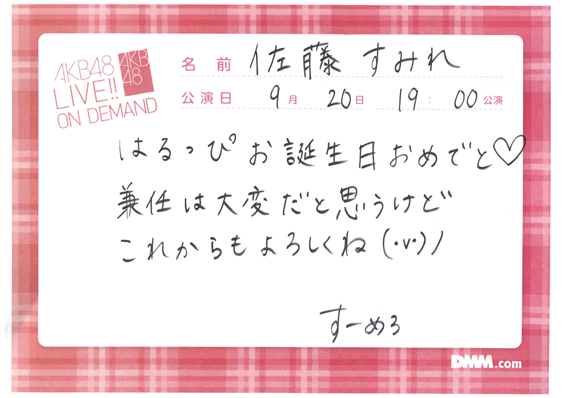 AKB48
LIVE!!
ON DEMAND
AKB
48
名前 佐藤すみれ
公演日 9月 20日 19:00公演
はるっぴお誕生日おめでと♡
兼任は大変だと思うけど
これからもよろしくね(・v・)ノ
すーめろ
DMM.com